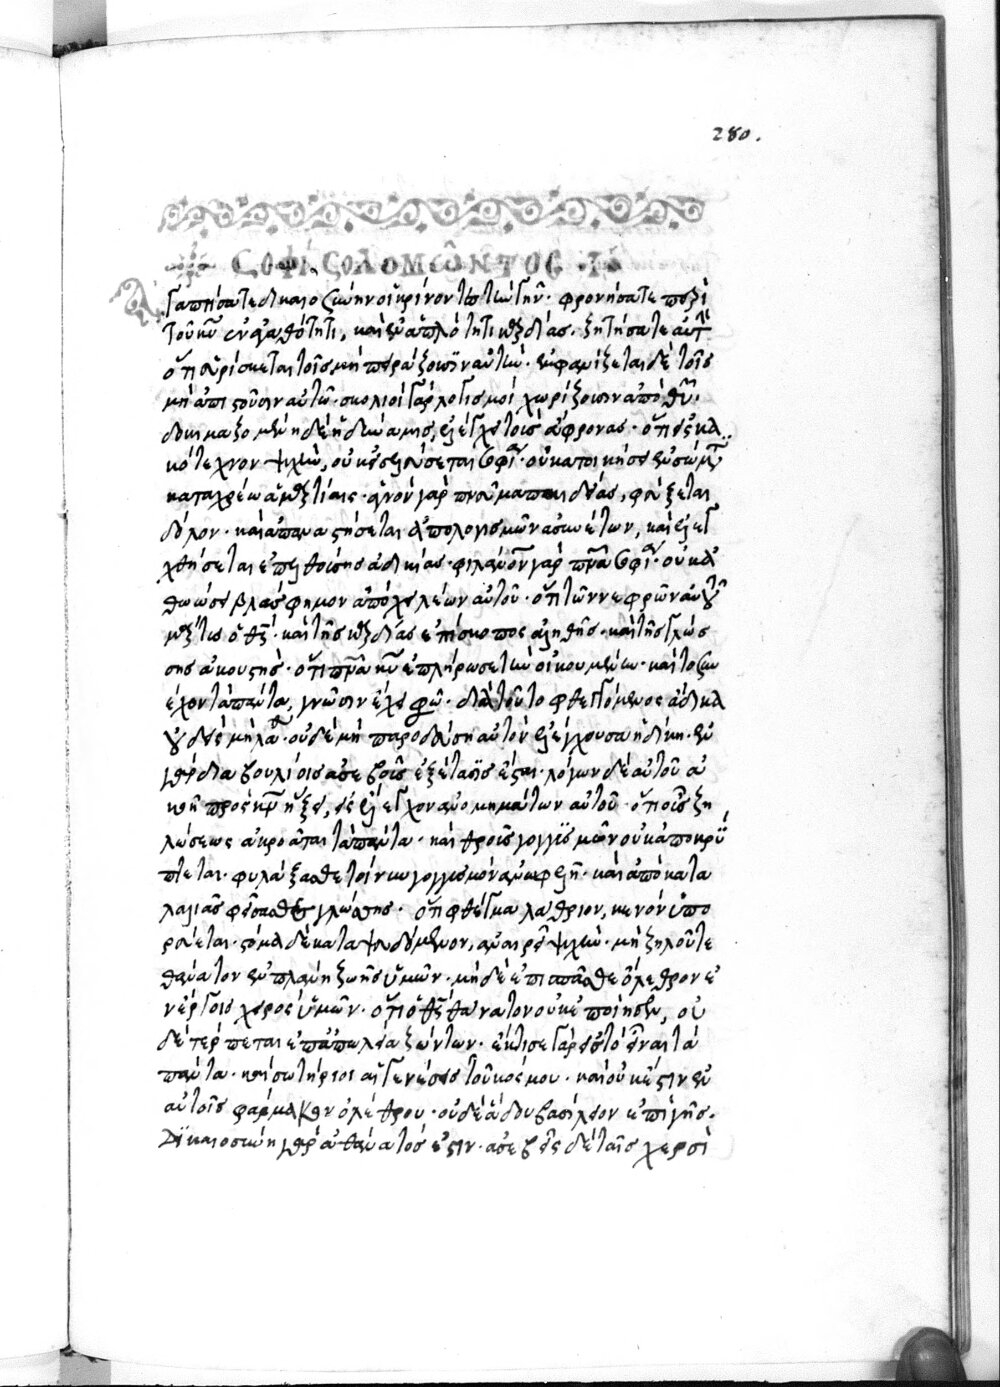 280.
ΣΟΦΙΑ ΣΟΛΟΜΩΝΤΟΣ
Ἀγαπήσατε δικαιοσύνην οἱ κρίνοντες τὴν γῆν· φρονήσατε περὶ
τοῦ κυ ἐν ἀγαθότητι, καὶ ἐν ἁπλότητι καρδίας ζητήσατε αὐτὸν
ὅτι εὑρίσκεται τοῖς μὴ πειράζουσιν αὐτὸν· ἐμφανίζεται δὲ τοῖς
μὴ ἀπιστοῦσιν αὐτῶ· σκολιοὶ γὰρ λογισμοὶ χωρίζουσιν ἀπὸ θυ·
δοκιμαζομένη δὲ ἡ δύναμις, ἐλέγχει τοὺς ἄφρονας· ὅτι εἰς κα
κότεχνον ψυχὴν, οὐκ εἰσελεύσεται σοφία· οὐ κατοικήσει ἐν σώματι
καταχρέω ἁμαρτίαις· ἅγιον γὰρ πνεῦμα παιδείας, φεύξεται
δόλον· καὶ ἀπαναστήσεται ἀπὸ λογισμῶν ἀσυνέτων, καὶ ἐλεγ
χθήσεται ἐπελθούσης ἀδικίας· φιλάνθρωπον γὰρ πνα σοφία· οὐκ ἀ
θωώσει βλάσφημον ἀπὸ χειλέων αὐτοῦ· ὅτι τῶν νεφρῶν αὐτοῦ
μάρτυς ὁ θς· καὶ τῆς καρδίας ἐπίσκοπος ἀληθὴς· καὶ τῆς γλώσ
σης ἀκουστὴς· ὅτι πνα κυ ἐπλήρωσε τὴν οἰκουμένην· καὶ τὸ συν
έχον τὰ πάντα, γνῶσιν ἔχει φωνῆς· διὰ τοῦτο φθεγγόμενος ἄδικα
οὐδεὶς μὴ λάθῃ· οὐδὲ μὴ παροδεύσῃ αὐτὸν ἐλέγχουσα ἡ δίκη· ἐν
γὰρ διαβουλίοις ἀσεβοῦς ἐξέτασις ἔσται· λόγων δὲ αὐτοῦ ἀ
κοὴ πρὸς κν ἥξει, εἰς ἔλεγχον ἀνομημάτων αὐτοῦ· ὅτι οὖς ζη
λώσεως ἀκροᾶται τὰ πάντα· καὶ θροῦς γογγυσμῶν οὐκ ἀποκρύ
πτεται· φυλάξασθε τοίνυν γογγυσμὸν ἀνωφελῆ· καὶ ἀπὸ κατα
λαλιᾶς φείσασθε γλώσσης· ὅτι φθέγμα λαθραῖον, κενὸν οὐ πο
ρεύεται· στόμα δὲ καταψευδόμενον, ἀναιρεῖ ψυχὴν· μὴ ζηλοῦτε
θάνατον ἐν πλάνη ζωῆς ὑμῶν· μηδὲ ἐπισπᾶσθε ὄλεθρον ἐν
ἔργοις χειρῶν ὑμῶν· ὅτι ὁ θς θάνατον οὐκ ἐποίησεν, οὐ
δὲ τέρπεται ἐπ' ἀπωλεία ζώντων· ἔκτισε γὰρ εἰς τὸ εἶναι τὰ
πάντα· καὶ σωτήριοι αἱ γενέσεις τοῦ κόσμου· καὶ οὐκ ἔστιν ἐν
αὐτοῖς φάρμακον ὀλέθρου· οὐδὲ ἅδου βασίλειον ἐπὶ γῆς·
Δικαιοσύνη γὰρ ἀθάνατός ἐστιν· ἀσεβεῖς δὲ ταῖς χερσὶ